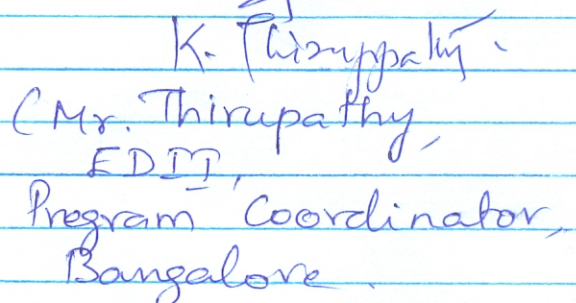 K. Thiruppathy.
(Mr. Thirupathy,
EDII,
Program Coordinator,
Bangalore.